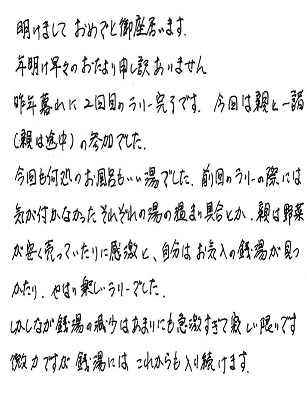 明けまして おめでと御座居います.
年明け早々のおたより申し訳ありません
昨年暮れに 2回目のラリー完了です. 今回は親と一諸
(親は途中)の参加でした.
今回も何処のお風呂もいい湯でした. 前回のラリーの際には
気が付かなかったそれぞれの湯の温まり具合とか. 親は野菜
が安く売っていたりに感激と、自分はお気入の銭湯が見つ
かたり. やはり楽しいラリーでした.
しかしながら銭湯の減少はあまりにも急激すぎて寂しい限りです
微力ですが 銭湯には これからも入り続けます.